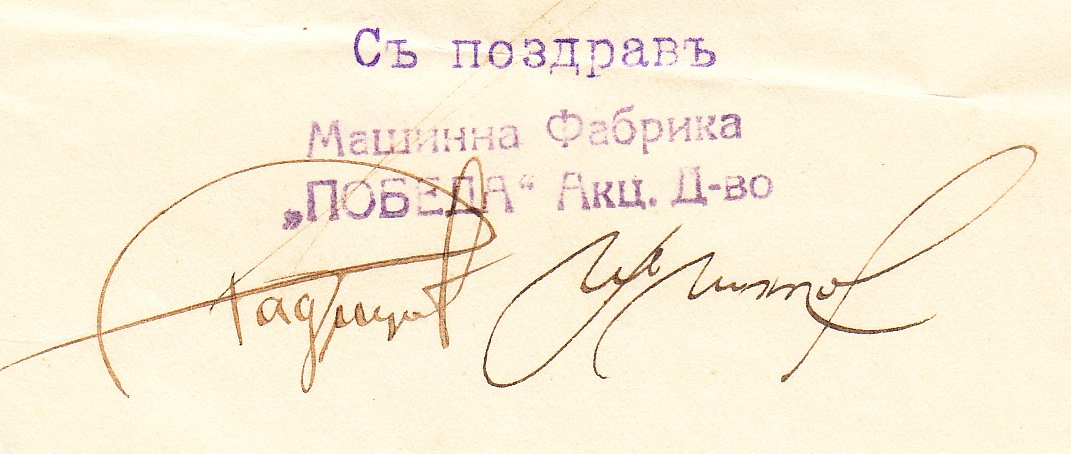 Съ поздравъ
Машинна Фабрика
„ПОБЕДА“ Акц. Д-во